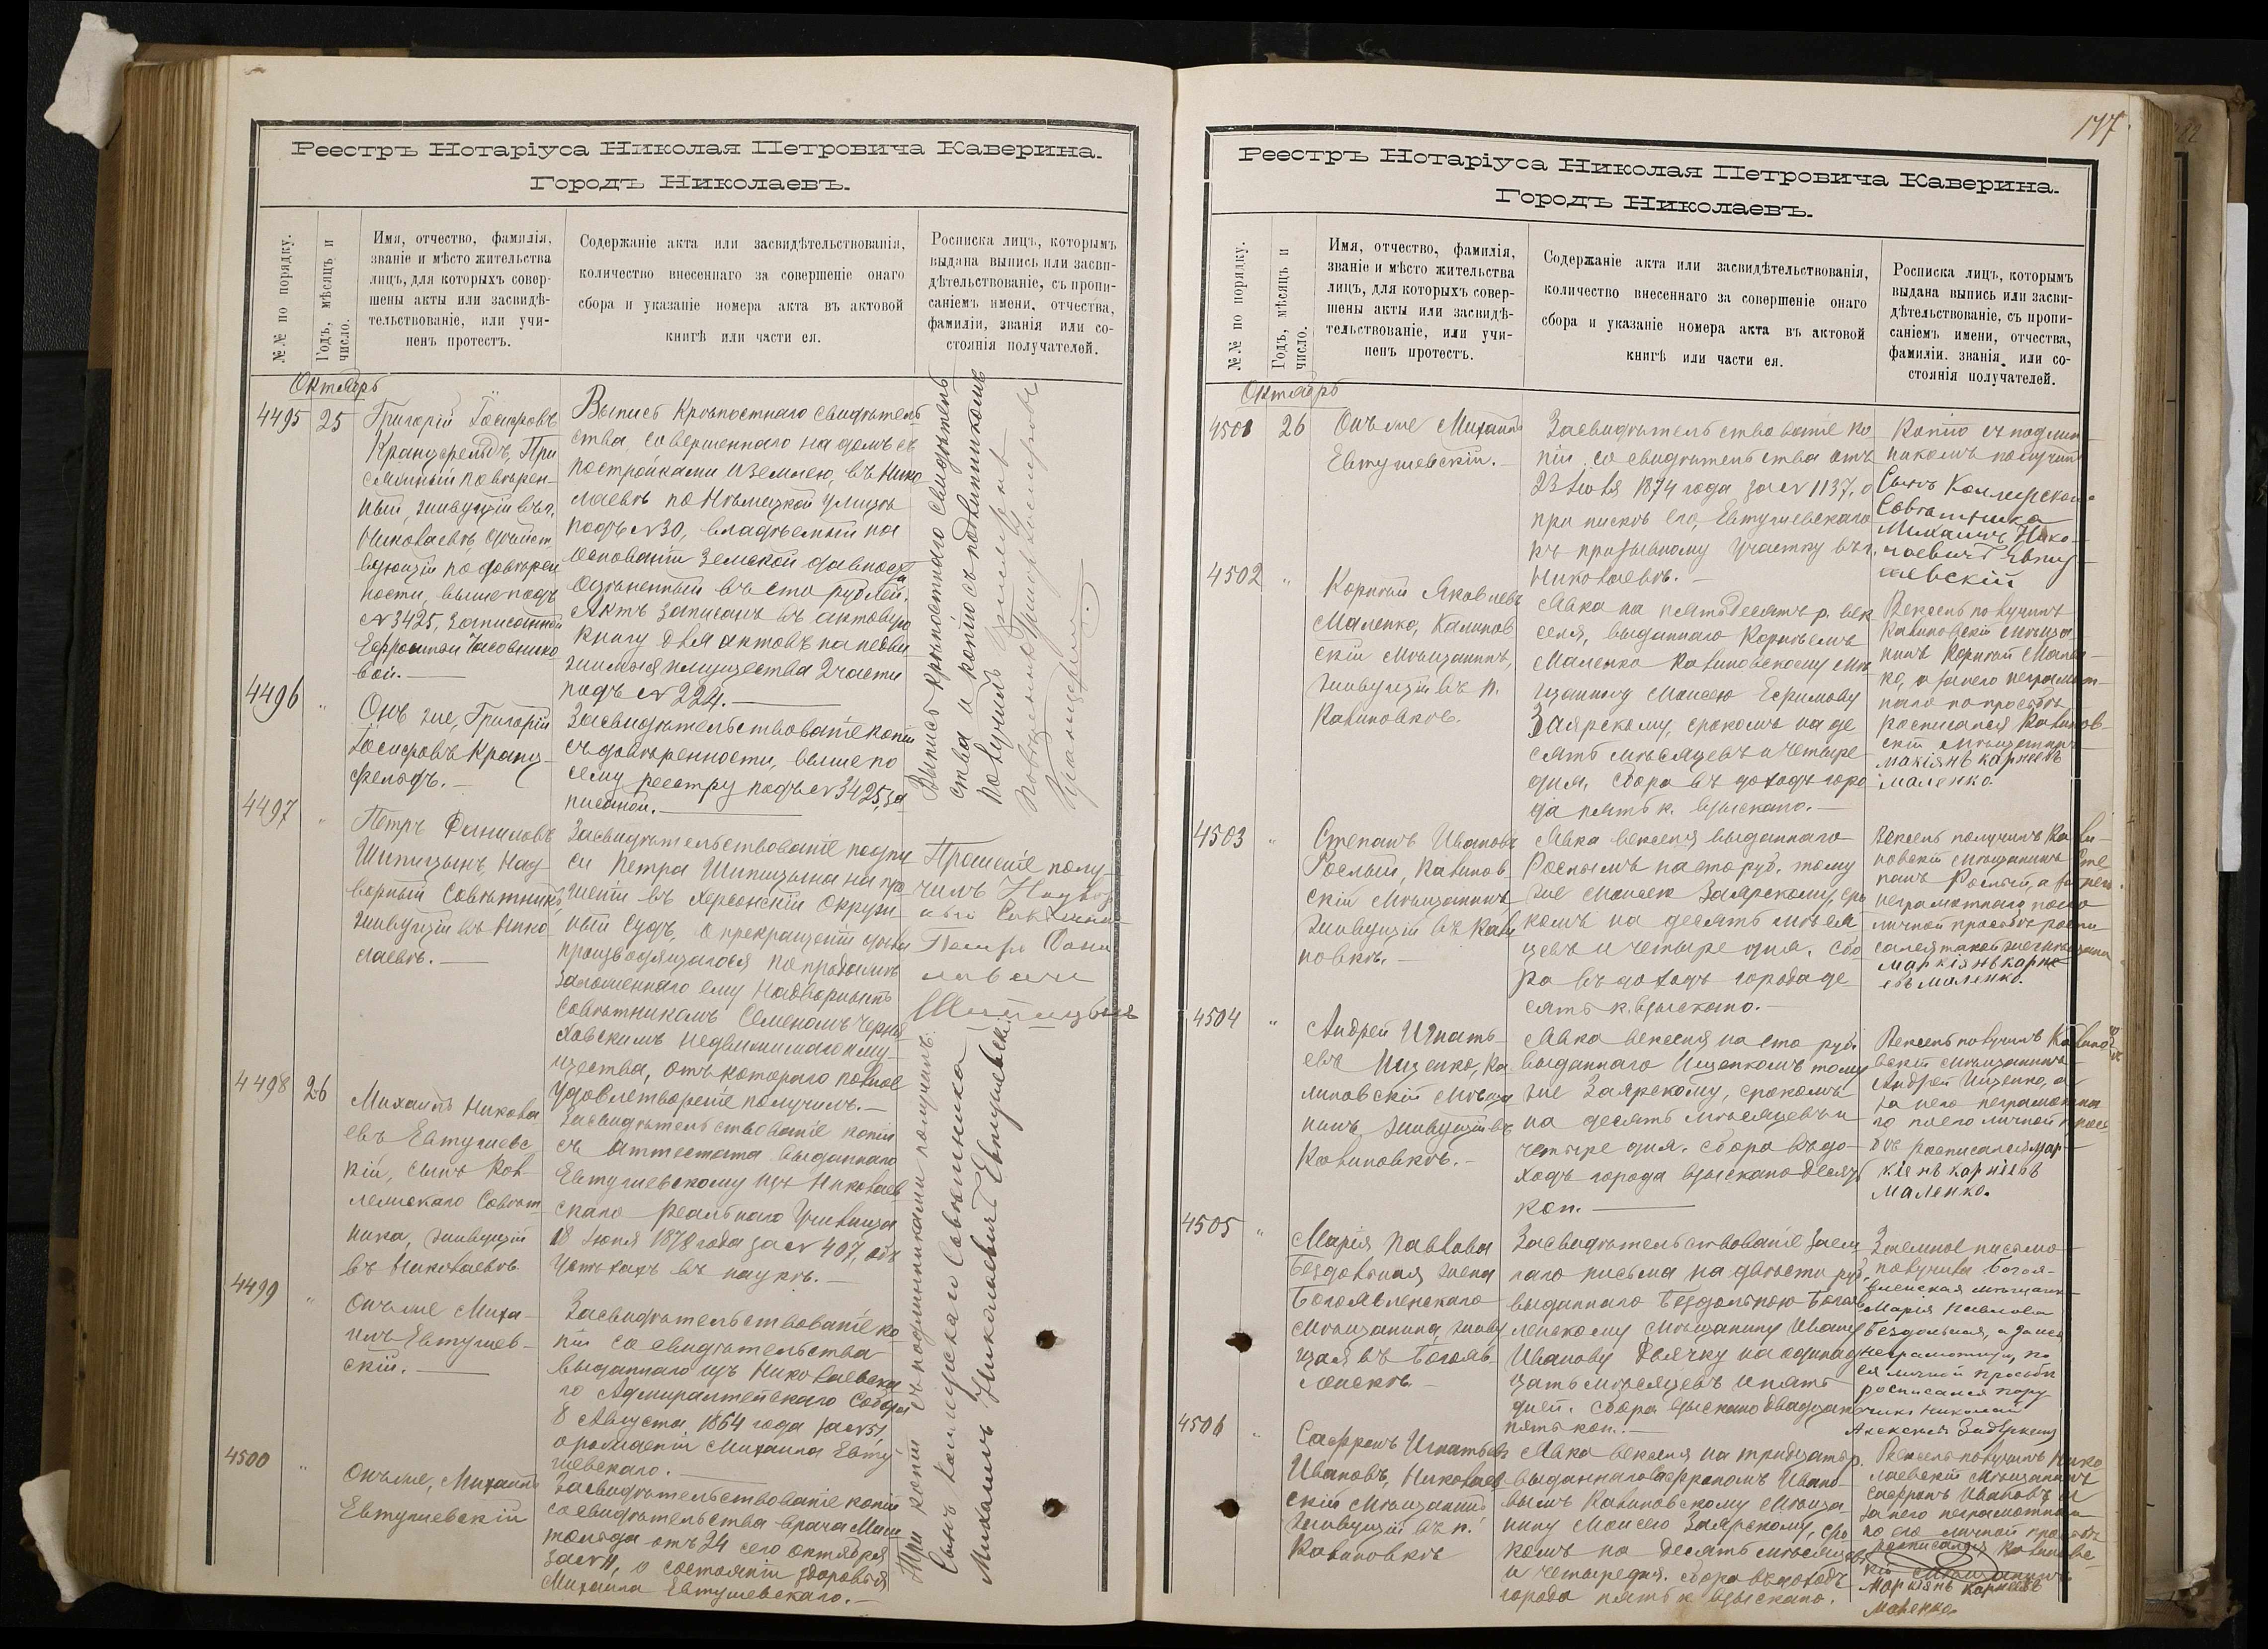 Реестръ Нотаріуса Николая Петровича Каверина.
Городъ Николаевъ.
№№ по порядку.
Годъ, мѣсяцъ и
число.
Имя, отчество, фамилія,
званіе и мѣсто жительства
лицъ, для которыхъ совер-
шены акты или засвидѣ-
тельствованіе, или учи-
ненъ протестъ.
Содержаніе акта или засвидѣтельствованія,
количество внесеннаго за совершеніе онаго
сбора и указаніе номера акта въ актовой
книгѣ или части ея.
Росписка лицъ, которымъ
выдана выпись или засви-
дѣтельствованіе, съ пропи-
саніемъ имени, отчества,
фамиліи, званія или со-
стоянія получателей.
Октябрь
4495
25
Григорій Іосифовъ
Кранцфельдъ, При
сяжный повѣрен-
ный, живущій въ г.
Николаевѣ, дѣйст
вующій по довѣрен
ности, выше подъ
№ 3425, записанной
Часовнико
вой.
Выпись Крѣпостнаго свидѣтель
ства, совершеннаго на домъ съ
постройками и землею, въ Нико
лаевѣ по Нѣмецкой улицѣ
подъ № 30, владѣемый на
основаніи земской давности
оцѣненный въ сто рублей.
Актъ записанъ въ актовую
книгу для актовъ на недви
жимыя имущества 2 части
подъ № 224.
Выпись крѣпостнаго свидѣтель
ства и копію съ подлинникомъ
получилъ Присяжный
Повѣренный Григорій Іосифовъ
Кранцфельдъ.
4496
"
Онъ же, Григорій
Іосифовъ Кранц-
фельдъ.
Засвидѣтельствованіе копіи
съ довѣренности, выше по
сему реестру подъ № 3425 за
писанной.
4497
"
Петръ Даниловъ
Шипицынъ, Над
ворный Совѣтникъ,
живущій въ Нико
лаевѣ.
Засвидѣтельствованіе подпи
си Петра Шипицына на про
шеніи въ Херсонскій Окруж
ный Судъ, о прекращеніи дѣла
производящагося по продажѣ
заложеннаго ему Надворнымъ
Совѣтникомъ Семеномъ Черня
ховскимъ недвижимаго иму-
щества, отъ котораго полное
удовлетвореніе получилъ.
Прошеніе полу-
чилъ Надвор
ный Совѣтникъ
Петръ Дани
ловичъ
Шипицынъ
4498
26
Михаилъ Никола
евъ Евтушевс
кій, сынъ Кол
лежскаго Совѣт
ника, живущій
въ Николаевѣ
Засвидѣтельствованіе копіи
съ аттестата выданнаго
Евтушевскому изъ Николаев
скаго Реальнаго Училища
18 Іюня 1878 года за № 407, объ
успѣхахъ въ наукѣ.
4499
"
Онъ же Миха-
илъ Евтушев-
скій.
Засвидѣтельствованіе ко
піи со свидѣтельства
выданнаго изъ Николаевска
го Адмиралтейскаго Собора
8 Августа 1864 года за № 51,
о рожденіи Михаила Евту
шевскаго.
4500
"
Онъ же, Михаилъ
Евтушевскій
Засвидѣтельствованіе копіи
со свидѣтельства врача
отъ 24 сего Октября
за № 11, о состояніи здоровья
Михаила Евтушевскаго.
Три копіи съ подлинниками получилъ:
Сынъ Коллежскаго Совѣтника
Михаилъ Николаевичъ Евтушевскій
177.
Реестръ Нотаріуса Николая Петровича Каверина.
Городъ Николаевъ.
№№ по порядку.
Годъ, мѣсяцъ и
число.
Имя, отчество, фамилія,
званіе и мѣсто жительства
лицъ, для которыхъ совер-
шены акты или засвидѣ-
тельствованіе, или учи-
ненъ протестъ.
Содержаніе акта или засвидѣтельствованія,
количество внесеннаго за совершеніе онаго
сбора и указаніе номера акта въ актовой
книгѣ или части ея.
Росписка лицъ, которымъ
выдана выпись или засви-
дѣтельствованіе, съ пропи-
саніемъ имени, отчества,
фамиліи. званія или со-
стоянія получателей.
Октябрь
4501
26
Онъ же Михаилъ
Евтушевскій.
Засвидѣтельствованіе ко
піи со свидѣтельства отъ
23 Іюля 1874 года за № 1137, о
припискѣ его, Евтушевскаго
къ призывному участку въ г.
Николаевѣ.
Копію съ подлин-
никомъ получилъ
Сынъ Коллежскаго
Совѣтника
Михаилъ Нико-
лаевичъ Евту
шевскій
4502
"
Корнѣй Яковлевъ
Маленко, Калинов
скій мѣщанинъ,
живущій въ п.
Калиновкѣ.
Явка на пятьдесятъ р. век
селя, выданнаго Корнѣемъ
Маленко Калиновскому мѣ
щанину Моисею Ефимову
Заярскому, срокомъ на де
сять мѣсяцевъ и четыре
дня, сбора въ доходъ горо
да пять к. взыскано.
Вексель получилъ
Калиновскій мѣща-
нинъ Корнѣй Мален-
ко, а за него неграмот-
наго по просьбѣ
росписался Калинов-
скій мѣщанинъ
маркіянъ карнѣевъ
маленко.
4503
"
Степанъ Ивановъ
Рослый, Калинов
скій мѣщанинъ
живущій въ Кали
новкѣ.
Явка векселя выданнаго
Рослымъ на сто руб. тому
же Моисею Заярскому, сро
комъ на десять мѣся
цевъ и четыре дня. Сбо
ра въ доходъ города де
сять к. взыскано.
Вексель получилъ Кали
новскій мѣщанинъ Сте
панъ Рослый, а за него
неграмотнаго по его
личной просьбѣ роспи
сался такой же мѣщанинъ
маркіянъ карнѣ
евъ маленко.
4504
"
Андрей Игнать-
евъ Ищенко, Ка
линовскій мѣща
нинъ живущій въ
Калиновкѣ.
Явка векселя на сто руб.
выданнаго Ищенкомъ тому
же Заярскому, срокомъ
на десять мѣсяцевъ и
четыре дня. Сбора въ до-
ходъ города взыскано десять
коп.
Вексель получилъ Калино
вскій мѣщанинъ
Андрей Ищенко, а
за него неграмотна
го по его личной прось
бѣ росписался мар
кіянъ карнѣевъ
маленко.
4505
"
Марія Павлова
Бездольная жена
Богоявленскаго
мѣщанина, живу
щая въ Богояв-
ленскѣ.
Засвидѣтельствованіе заем
наго письма на двѣсти руб,
выданнаго Бездольною Богояв
ленскому мѣщанину Ивану
Иванову Дьячку на одинад
цать мѣсяцевъ и пять
дней. Сбора взыскано двадцать
пять коп.
Заемное письмо
получила Богоя-
вленская мѣщанка
Марія Павлова
Бездольная, а за нее
неграмотную, по
ея личной просьбѣ
росписался пору
чикъ Николай
4506
"
Сафронъ Игнатьевъ
Ивановъ, Николаев
скій мѣщанинъ
живущій въ п.
Калиновкѣ
Явка векселя на тридцать р.
выданнаго Сафрономъ Ивано-
вымъ Калиновскому мѣща-
нину Моисею Заярскому, сро
комъ на десять мѣсяцевъ
и четыре дня. Сбора въ доходъ
города пять к. взыскано.
Вексель получилъ Нико
лаевскій мѣщанинъ
Сафронъ Ивановъ, а
за него неграмотнаго
по его личной просьбѣ
росписался Калиновс-
кій мѣщанинъ
Маркіянъ карнѣевъ
маленко